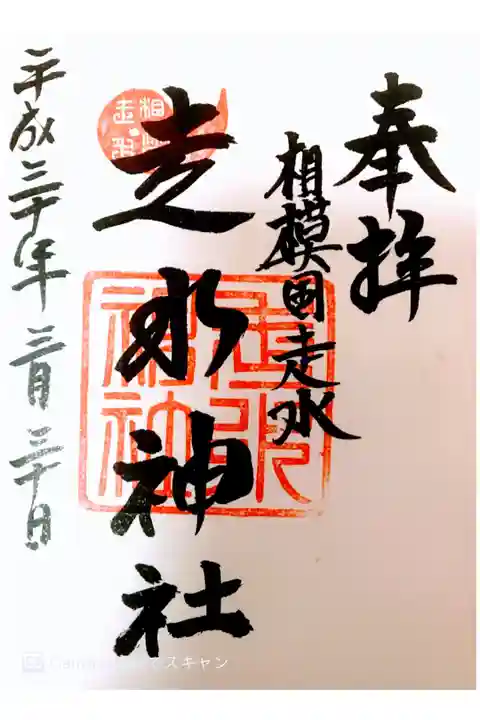 奉拝
相模国走水
走水神社
平成三十年三月三十日
走水神社
スキャン